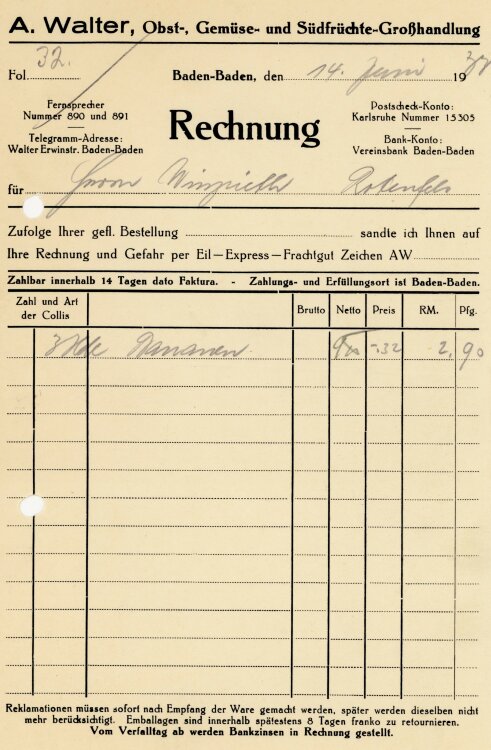 A. Walter, Obst-, Gemüse- und Südfrüchte-Großhandlung
Fol. 32.
Baden-Baden, den 14. Juni 19
Fernsprecher
Nummer 890 und 891
Telegramm-Adresse:
Walter Erwinstr. Baden-Baden
Rechnung
Postscheck-Konto:
Karlsruhe Nummer 15305
Bank-Konto:
Vereinsbank Baden-Baden
für Herrn Rotenfels
Zufolge Ihrer gefl. Bestellung sandte ich Ihnen auf
Ihre Rechnung und Gefahr per Eil—Express—Frachtgut Zeichen AW
Zahlbar innerhalb 14 Tagen dato Faktura. - Zahlungs- und Erfüllungsort ist Baden-Baden.
Zahl und Art
der Collis
Brutto Netto Preis RM. Pfg.
Bananen -.32 2. 90
Reklamationen müssen sofort nach Empfang der Ware gemacht werden, später werden dieselben nicht
mehr berücksichtigt. Emballagen sind innerhalb spätestens 8 Tagen franko zu retournieren.
Vom Verfalltag ab werden Bankzinsen in Rechnung gestellt.